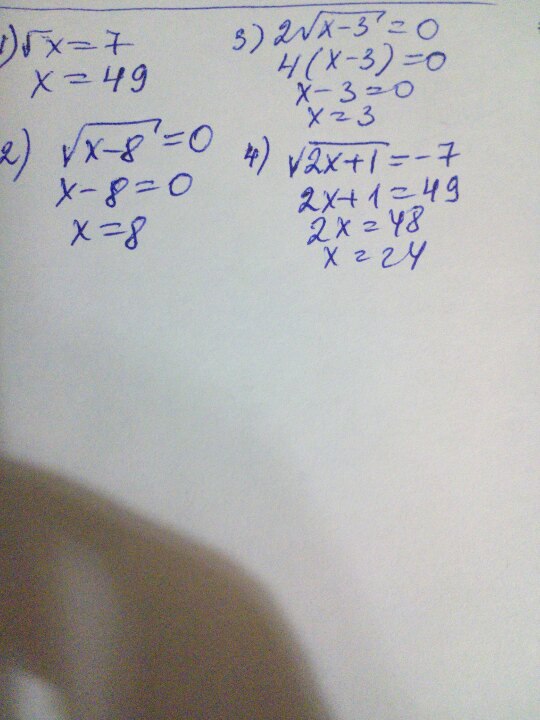 1) √x = 7
x = 49
2) √x-8 = 0
x - 8 = 0
x = 8
3) 2√x-3 = 0
4(x-3) = 0
x - 3 = 0
x = 3
4) √2x+1 = -7
2x+1 = 49
2x = 48
x = 24